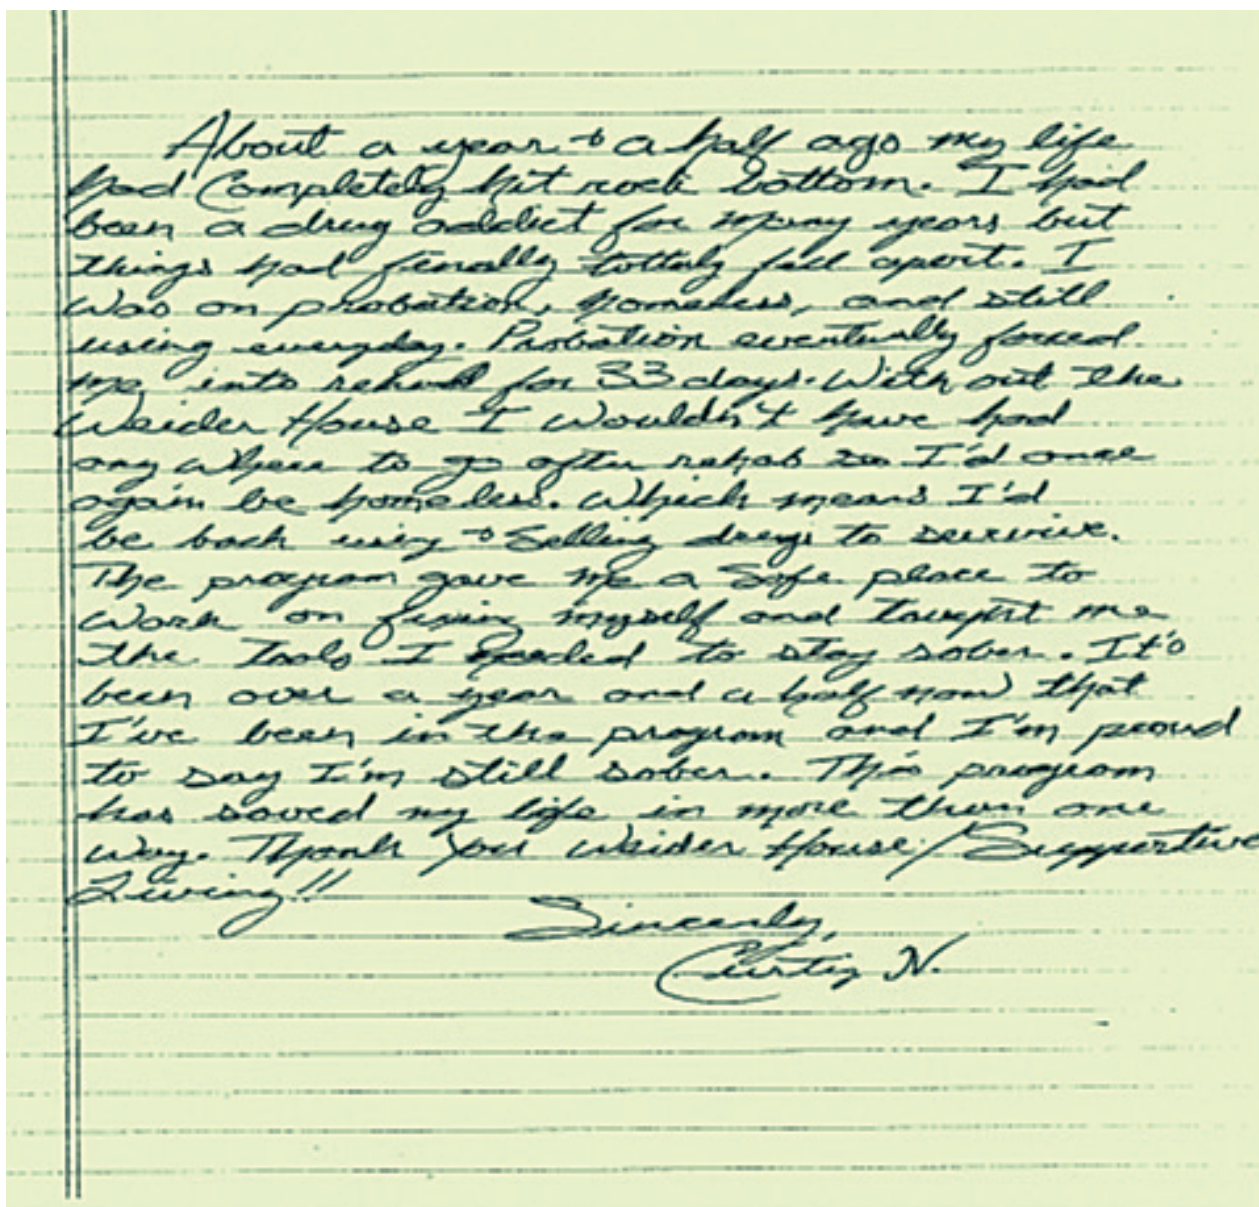 About a year & a half ago my life
had completely hit rock bottom. I had
been a drug addict for many years but
things had finally tottaly fell apart. I
was on probation, homeless, and still
using everyday. Probation eventually forced
me into rehab for 33 days. With out the
Weider House I wouldn't have had
any where to go after rehab so I'd once
again be homeless. Which means I'd
be back using & selling drugs to survive.
The program gave me a safe place to
work on fixing myself and taught me
the tools I needed to stay sober. It's
been over a year and a half now that
I've been in the program and I'm proud
to say I'm still sober. This program
has saved my life in more than one
way. Thank you Weider House/Supportive
Living!!
Sincerly,
Curtis N.